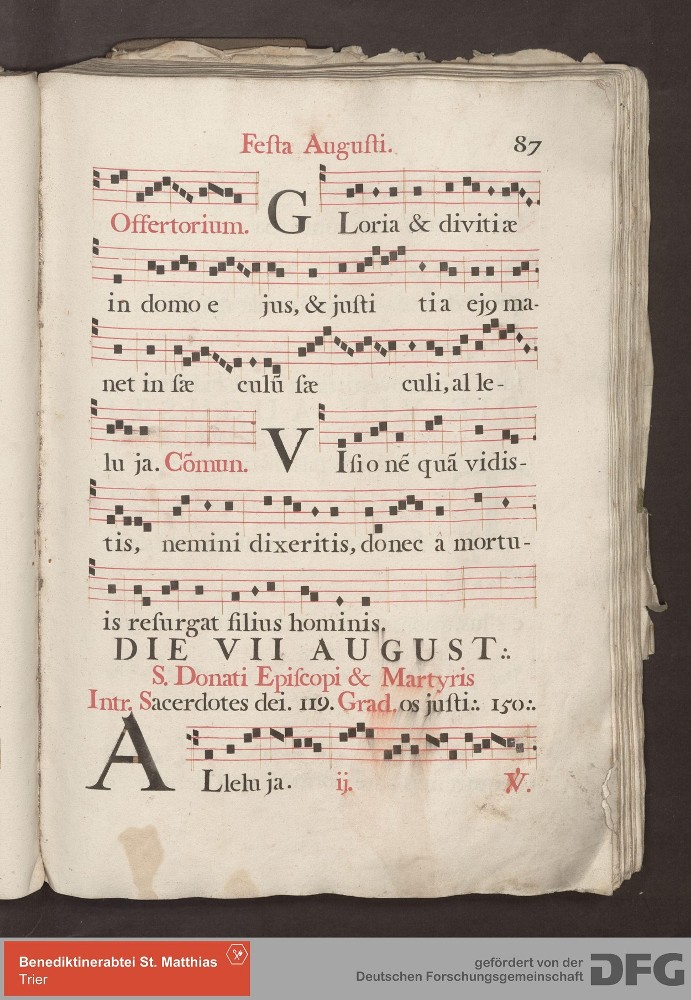 Feſta Auguſti. 87
Offertorium. G Loria & divitiæ
in domo e jus, & juſti tia ejꝯ ma-
net in ſæ culũ ſæ culi, al le-
lu ja. Cõmun. V Iſi o nẽ quã vidis-
tis, nemini dixeritis, donec â mortu-
is reſurgat filius hominis.
DIE VII AUGUST∴
S. Donati Epiſcopi & Martyris
Intr. Sacerdotes dei. 119. Grad. os juſti∴ 150∴
A Llelu ja. ij. ℣.
Benediktinerabtei St. Matthias
Trier
gefördert von der
Deutschen Forschungsgemeinschaft DFG